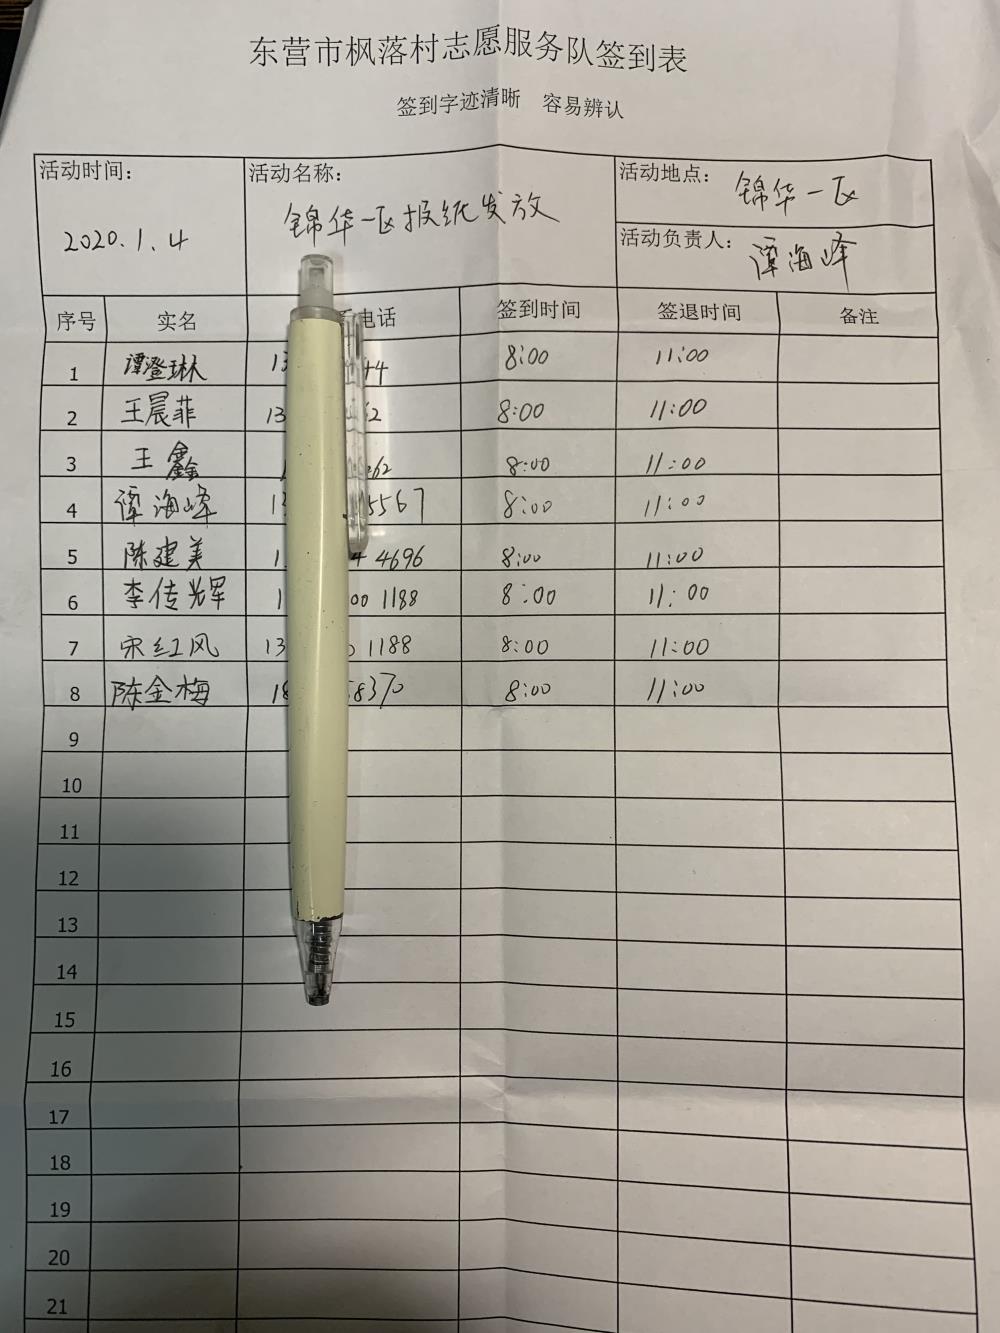 东营市枫落村志愿服务队签到表
签到字迹清晰 容易辨认
活动时间: 2020.1.4
活动名称: 锦华一区报纸发放
活动地点: 锦华一区
活动负责人: 谭海峰
序号 实名 电话 签到时间 签退时间 备注
1 谭澄琳 13 44 8:00 11:00
2 王晨菲 13 62 8:00 11:00
3 王鑫 1 62 8:00 11:00
4 谭海峰 13 5567 8:00 11:00
5 陈建美 1 4 4696 8:00 11:00
6 李传辉 1 00 1188 8:00 11:00
7 宋红风 13 0 1188 8:00 11:00
8 陈金梅 18 8370 8:00 11:00
9
10
11
12
13
14
15
16
17
18
19
20
21